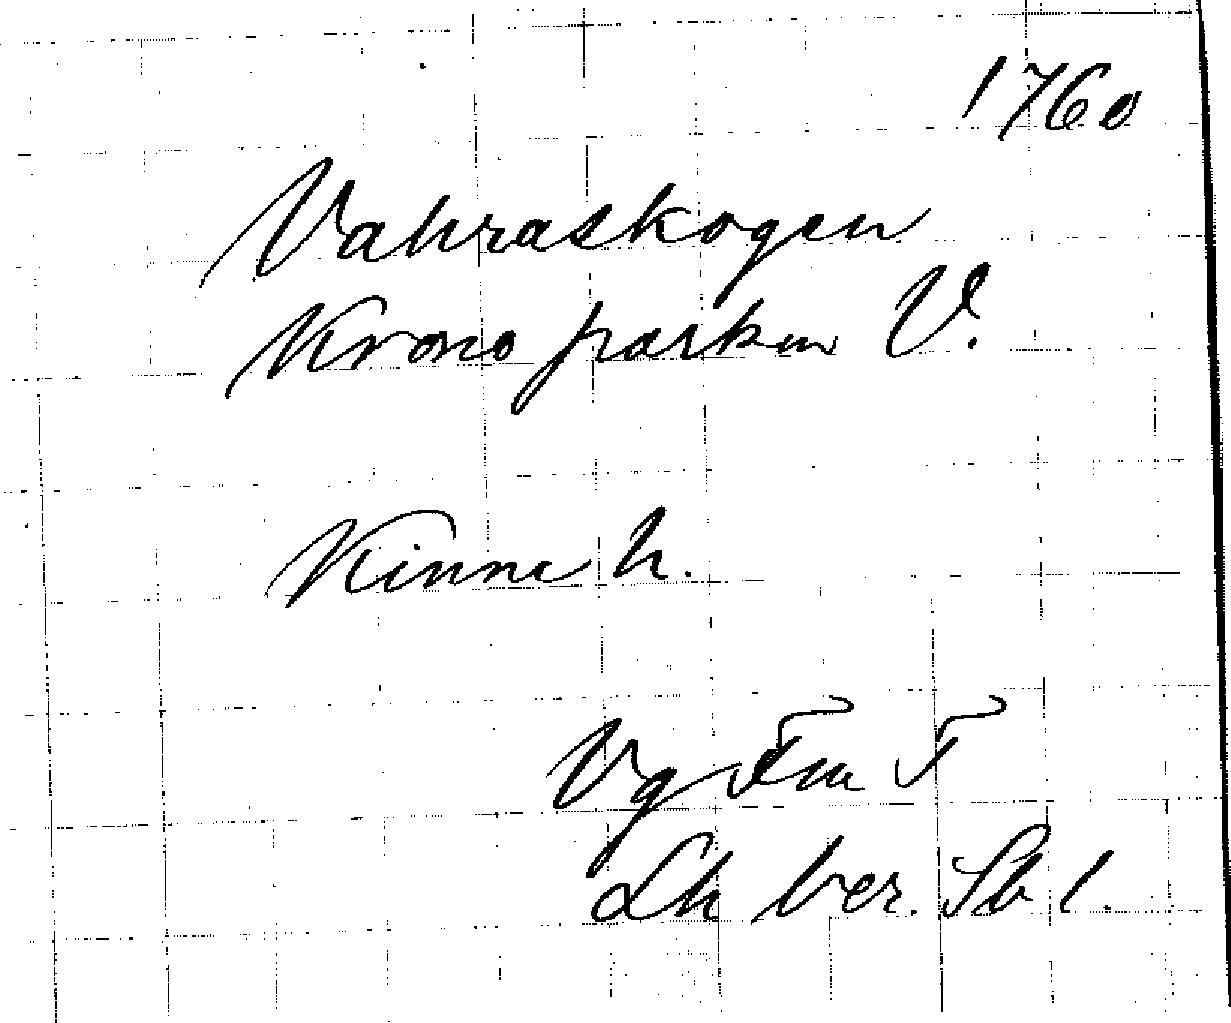 1760
Vahraskogen
Krono parken V.
Kinne h.
Vg Fm F
Lh ber. Sb 1.